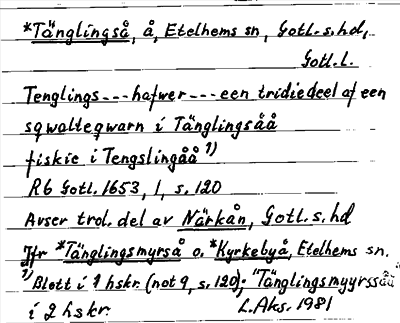 *Tänglingså, å, Etelhems sn, Gotl.s.hd,
Gotl.l.
Tenglings---hafwer---een tridiedeel af een
sqwalteqwarn i Tänglingsåå
fiskie i Tengslingåå 1)
RG Gotl. 1653, 1, s. 120
Avser trol. del av Närkån, Gotl.s.hd
Jfr *Tänglingsmyrså o. *Kyrkebyå, Etelhems sn.
1) Blott i 1 hskr. (not 9, s. 120); "Tänglingsmyyrssåå"
i 2 hskr. L.Aks. 1981